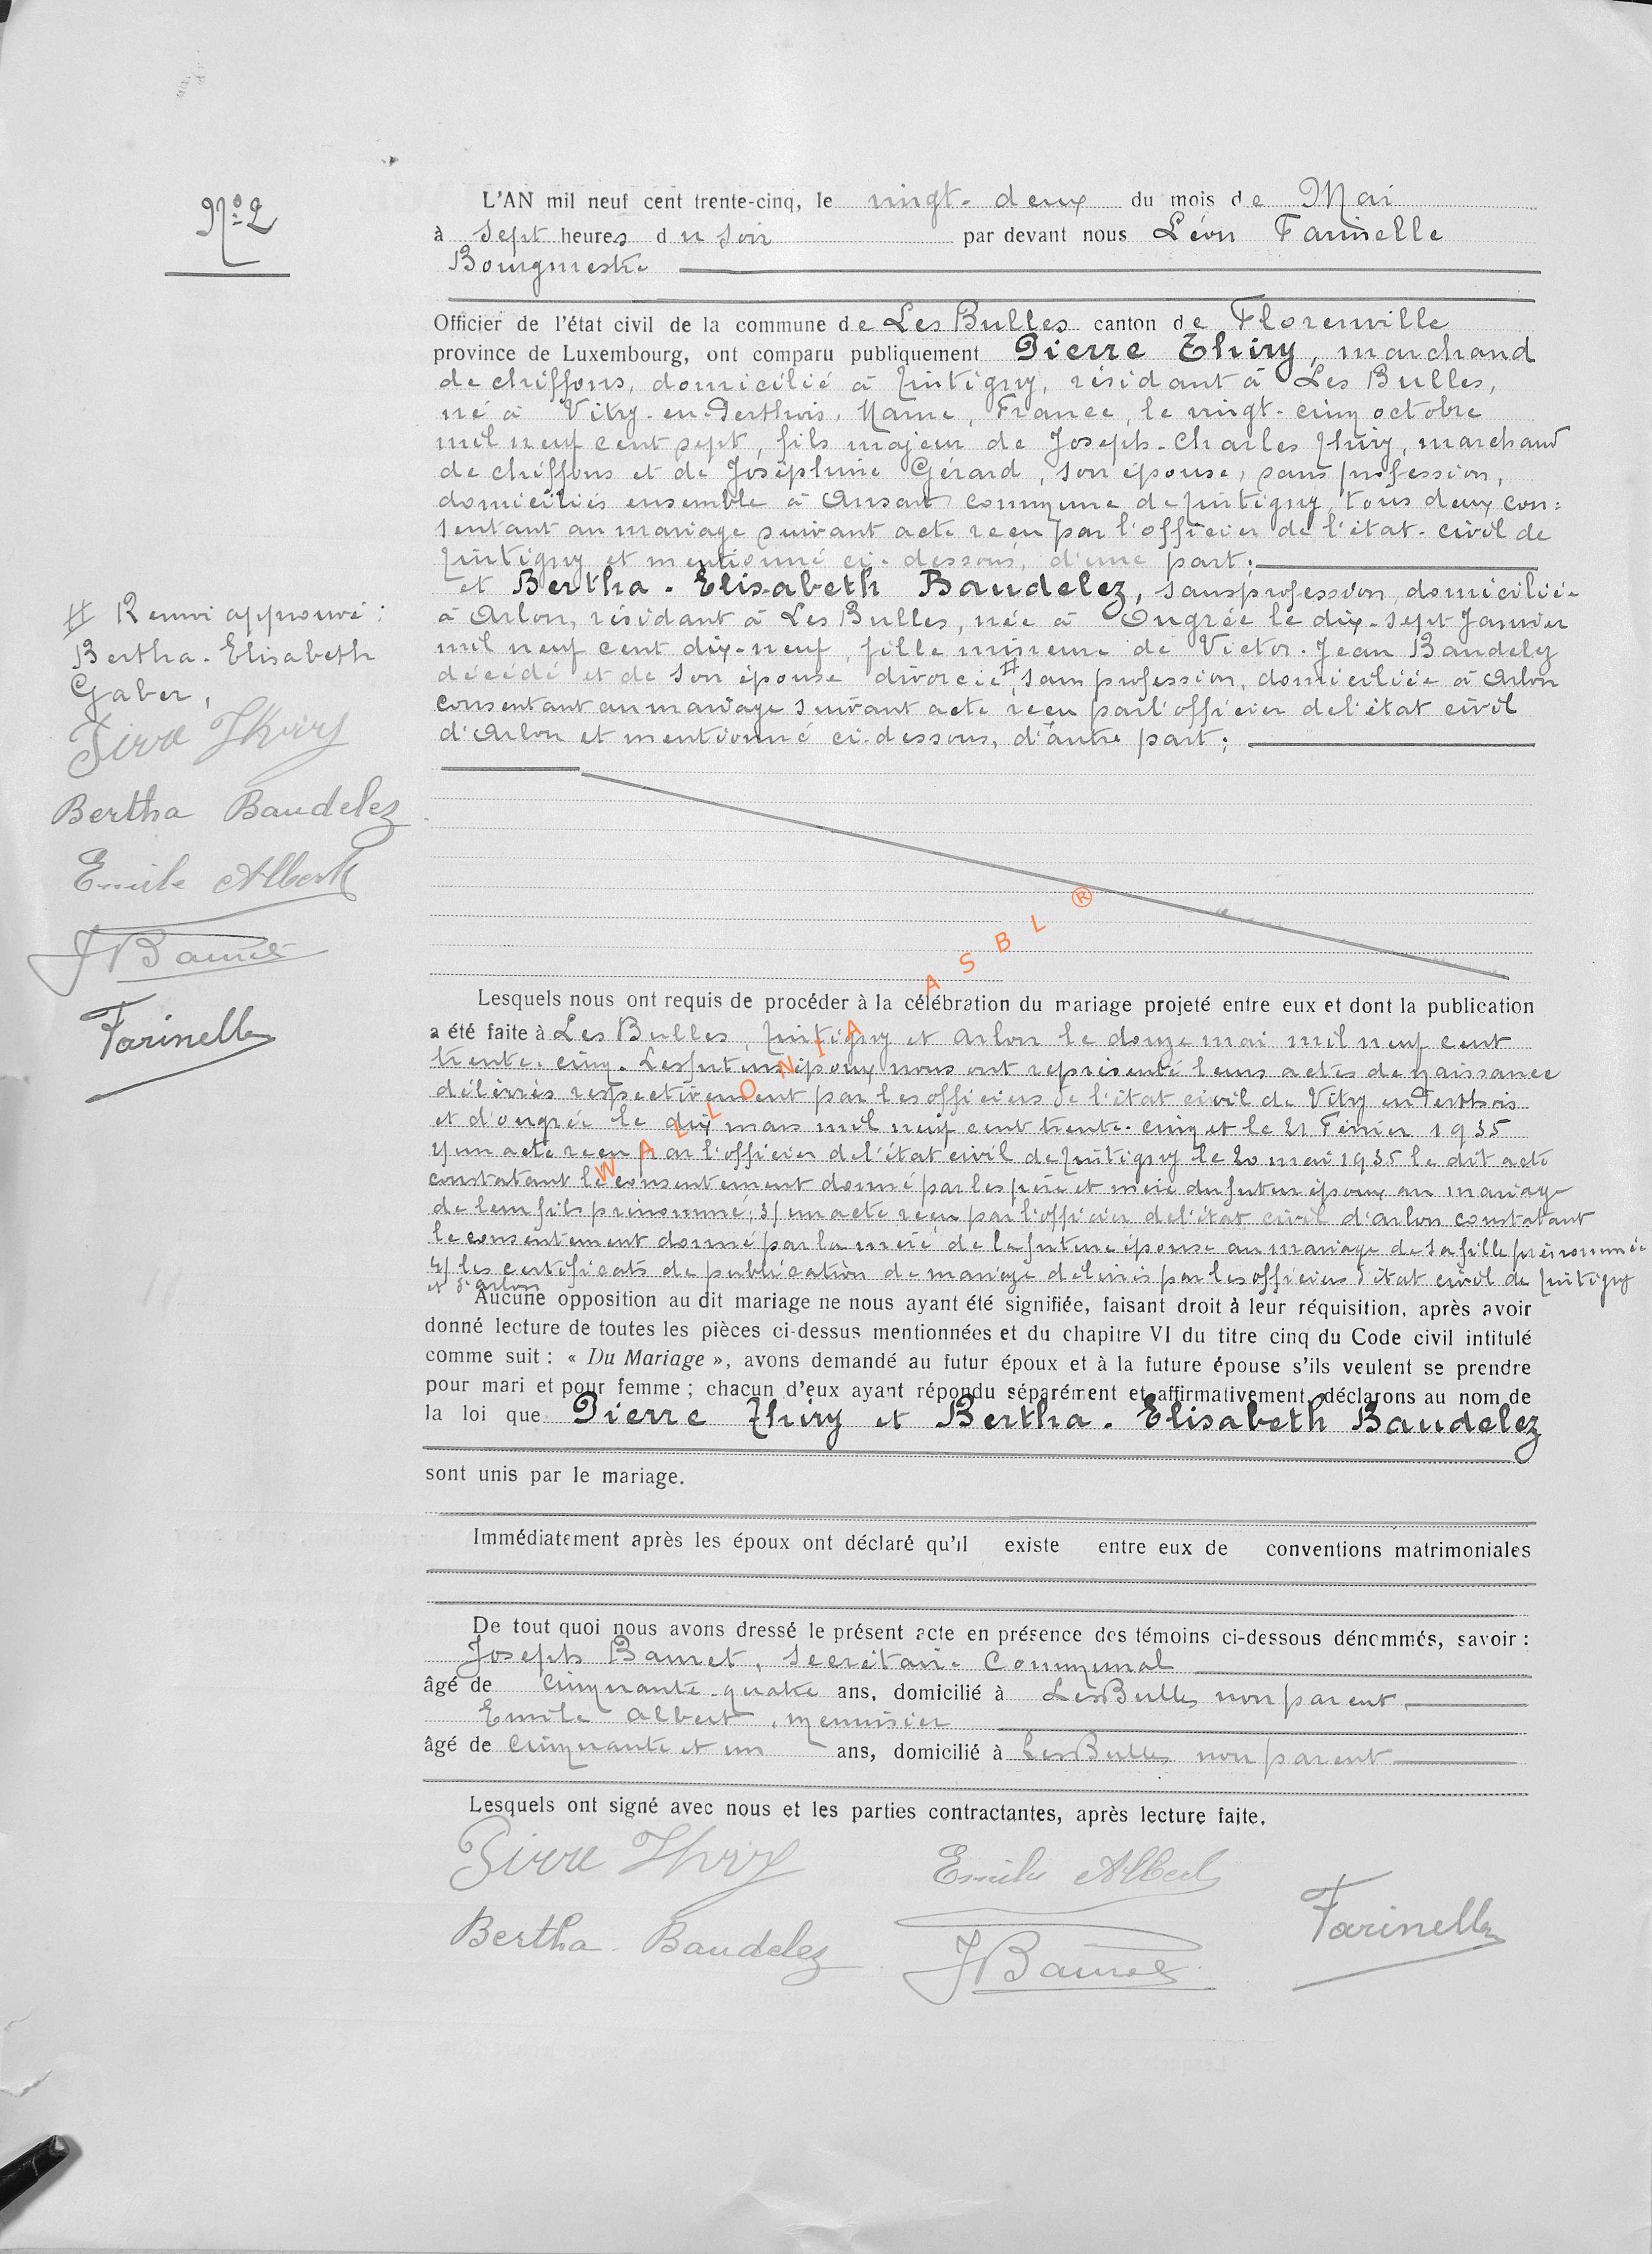 No 2
L'AN mil neuf cent trente-cinq, le vingt-deux du mois de Mai
à sept heures du soir par devant nous Léon Farinelle
Bourgmestre
Officier de l'état civil de la commune de Les Bulles canton de Florenville
province de Luxembourg, ont comparu publiquement Pierre Thiry, marchand
de chiffons, domicilié à Jintigny, résidant à Les Bulles,
né à Vitry-en-Perthois, Marne, France, le vingt-cinq octobre
mil neuf cent sept, fils majeur de Joseph-Charles Thiry, marchand
de chiffons et de Joséphine Gérard, son épouse, sans profession,
domiciliés ensemble à Ansart commune de Jintigny, tous deux con:
sentant au mariage suivant acte reçu par l'officier de l'état-civil de
Jintigny et mentionné ci-dessous, d'une part;
et Bertha-Elisabeth Baudelez, sans profession, domiciliée
à Arlon, résidant à Les Bulles, née à Ougrée le dix-sept Janvier
mil neuf cent dix-neuf, fille mineure de Victor-Jean Baudelez
décédé et de son épouse divorcée #, sans profession, domiciliée à Arlon
consentant au mariage suivant acte reçu par l'officier de l'état civil
d'Arlon et mentionné ci-dessous, d'autre part;
# Renvoi approuvé:
Bertha-Elisabeth
Gaber,
Pierre Thiry
Bertha Baudelez
Emile Albert
J Bauret
Farinelle
Lesquels nous ont requis de procéder à la célébration du mariage projeté entre eux et dont la publication
a été faite à Les Bulles, Jintigny et Arlon le douze mai mil neuf cent
trente-cinq. Les futurs époux nous ont représenté leurs actes de naissance
délivrés respectivement par les officiers de l'état civil de Vitry en Perthois
et d'Ougrée le dix mars mil neuf cent trente-cinq et le 21 Février 1935
2/ un acte reçu par l'officier de l'état civil de Jintigny le 20 mai 1935 le dit acte
constatant le consentement donné par les père et mère du futur époux au mariage
de leur fils prénommé; 3/ un acte reçu par l'officier de l'état civil d'Arlon constatant
le consentement donné par la mère de la future épouse au mariage de sa fille prénommée
4/ les certificats de publication de mariage délivrés par les officiers d'état civil de Jintigny
et d'Arlon
Aucune opposition au dit mariage ne nous ayant été signifiée, faisant droit à leur réquisition, après avoir
donné lecture de toutes les pièces ci-dessus mentionnées et du chapitre VI du titre cinq du Code civil intitulé
comme suit : « Du Mariage », avons demandé au futur époux et à la future épouse s'ils veulent se prendre
pour mari et pour femme ; chacun d'eux ayant répondu séparément et affirmativement, déclarons au nom de
la loi que Pierre Thiry et Bertha-Elisabeth Baudelez
sont unis par le mariage.
Immédiatement après les époux ont déclaré qu'il existe entre eux de conventions matrimoniales
De tout quoi nous avons dressé le présent acte en présence des témoins ci-dessous dénommés, savoir :
Joseph Bauret, Secrétaire Communal
âgé de cinquante-quatre ans, domicilié à Les Bulles non parent
Emile Albert, menuisier
âgé de cinquante et un ans, domicilié à Les Bulles non parent
Lesquels ont signé avec nous et les parties contractantes, après lecture faite.
Pierre Thiry Emile Albert
Farinelle
Bertha Baudelez J Bauret
WALLONIA ASBL ®